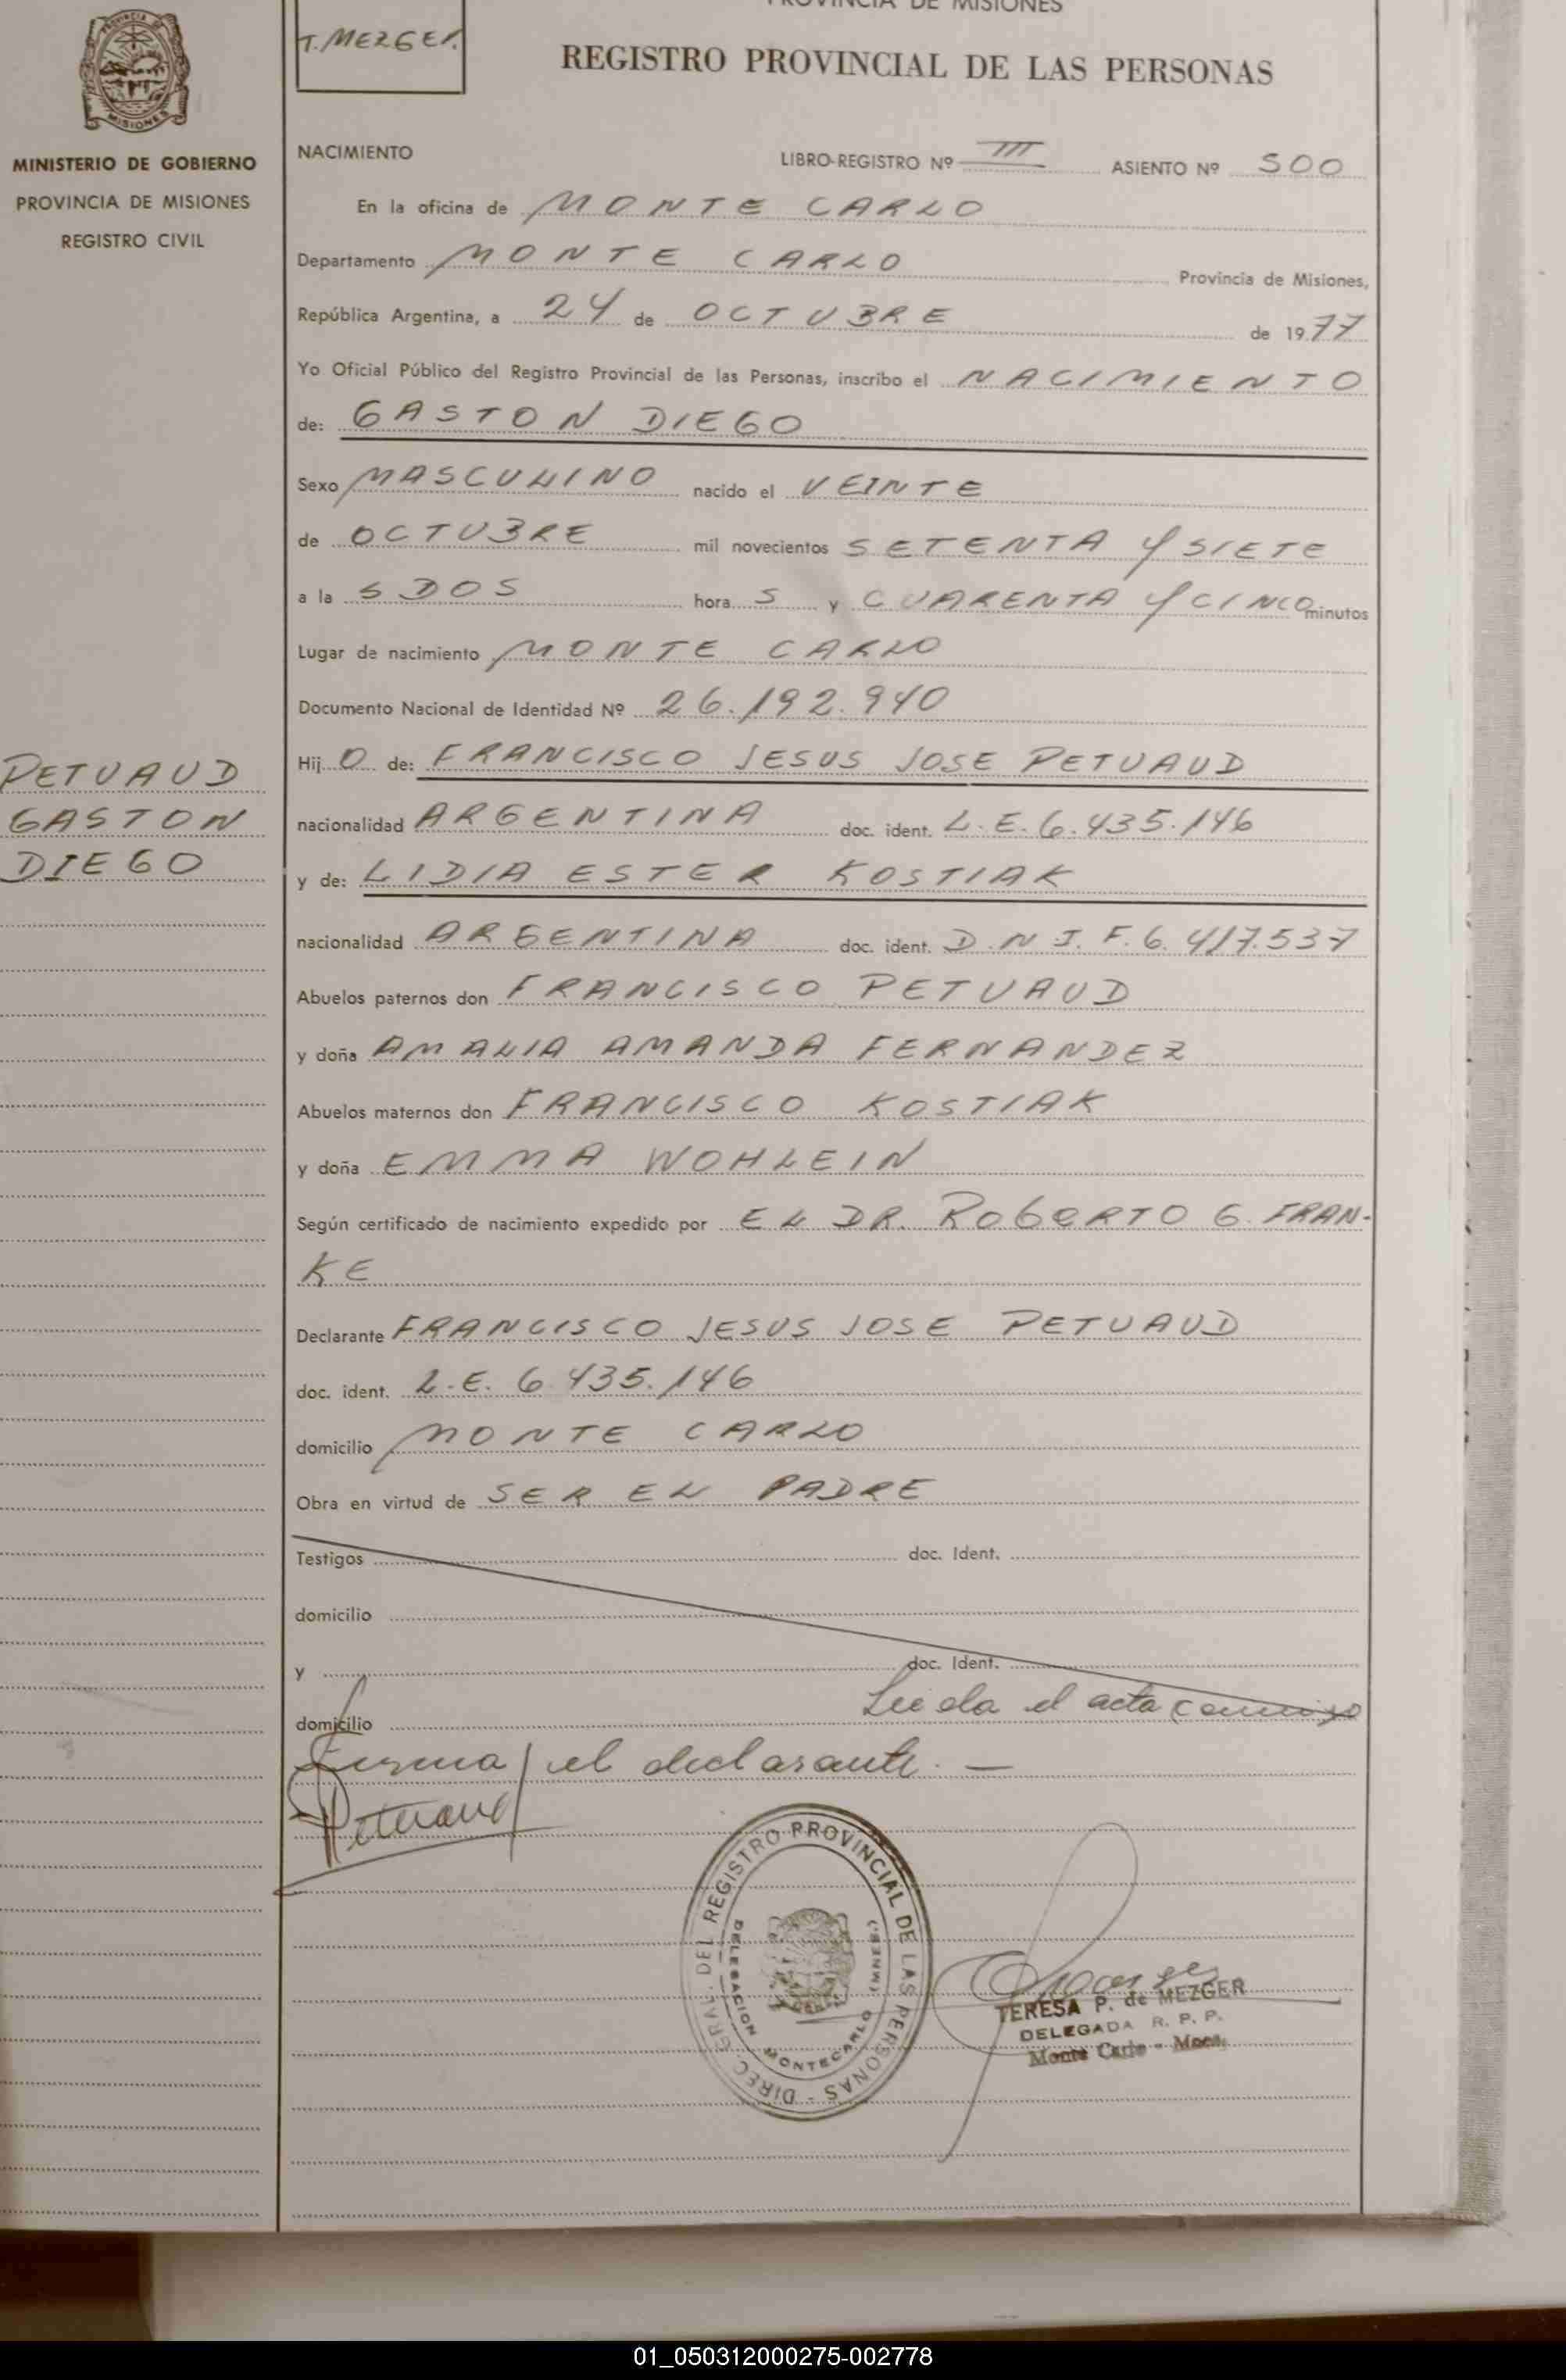 PROVINCIA DE MISIONES
T. MEZGER.
REGISTRO PROVINCIAL DE LAS PERSONAS
MISIONES
MINISTERIO DE GOBIERNO
PROVINCIA DE MISIONES
REGISTRO CIVIL
PETUAUD
GASTON
DIEGO
NACIMIENTO LIBRO-REGISTRO Nº III ASIENTO Nº 500
En la oficina de MONTE CARLO
Departamento MONTE CARLO Provincia de Misiones,
República Argentina, a 24 de OCTUBRE de 1977
Yo Oficial Público del Registro Provincial de las Personas, inscribo el NACIMIENTO
de: GASTON DIEGO
Sexo MASCULINO nacido el VEINTE
de OCTUBRE mil novecientos SETENTA Y SIETE
a la S DOS hora S y CUARENTA Y CINCO minutos
Lugar de nacimiento MONTE CARLO
Documento Nacional de Identidad Nº 26.192.940
Hij O de: FRANCISCO JESUS JOSE PETUAUD
nacionalidad ARGENTINA doc. ident. L.E. 6.435.146
y de: LIDIA ESTER KOSTIAK
nacionalidad ARGENTINA doc. ident. D.N.I. F. 6.417.537
Abuelos paternos don FRANCISCO PETUAUD
y doña AMALIA AMANDA FERNANDEZ
Abuelos maternos don FRANCISCO KOSTIAK
y doña EMMA WOHLEIN
Según certificado de nacimiento expedido por EL DR. ROBERTO G. FRAN-
KE
Declarante FRANCISCO JESUS JOSE PETUAUD
doc. ident. L.E. 6.435.146
domicilio MONTE CARLO
Obra en virtud de SER EL PADRE
Testigos doc. Ident.
domicilio
y doc. Ident.
domicilio Leida el acta conmigo
firma el declarante. —
Petuaud
DIREC. GRAL. DEL REGISTRO PROVINCIAL DE LAS PERSONAS -
DELEGACION MONTECARLO (MNES.)
TERESA P. de MEZGER
DELEGADA R. P. P.
Monte Carlo - Mnes.
01_050312000275-002778